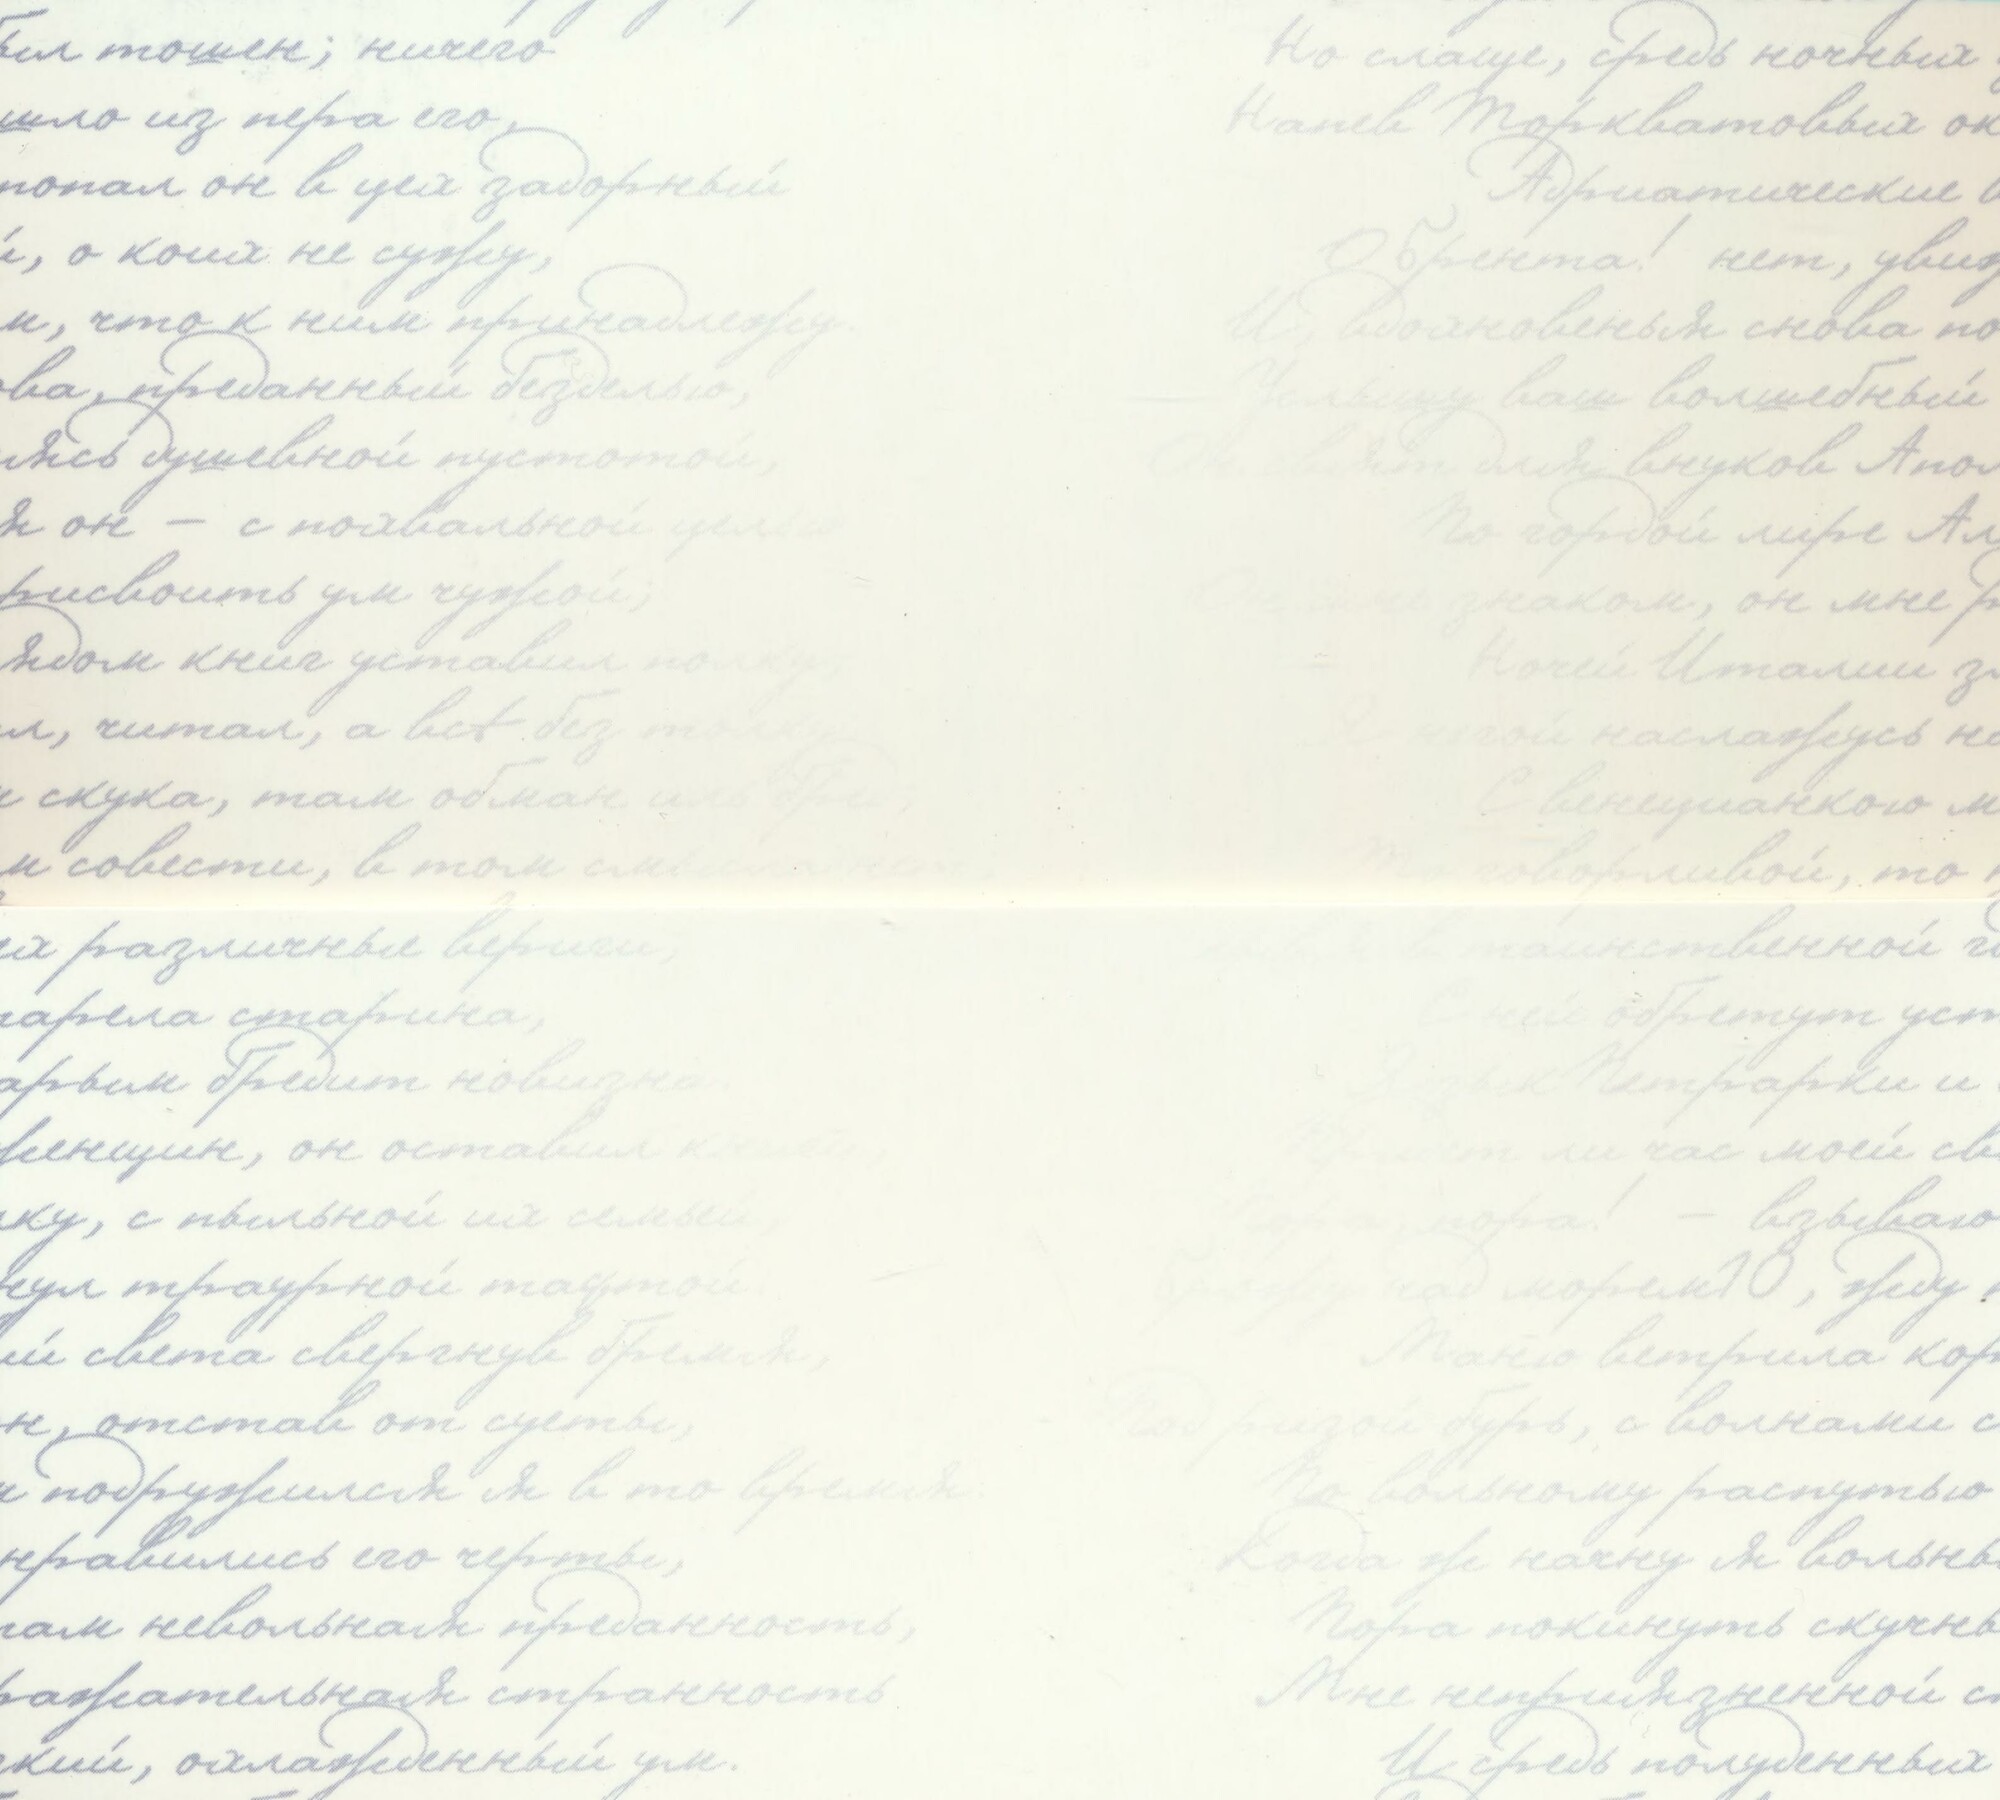 был тошен; ничего
шло из пера его,
попал он в цех задорный
й, о коих не сужу,
м, что к ним принадлежу.
ова, преданный безделью,
ясь душевной пустотой,
я он — с похвальной целью
рисвоить ум чужой;
ядом книг уставил полку,
л, читал, а всё без толку
и скука, там обман иль бред;
м совести, в том смысла нет;
ех различные вериги,
тарела старина,
арым бредит новизна
женщин, он оставил книги,
лку, с пыльной их семьей,
нул траурной тафтой.
ий света свергнув бремя,
н, отстав от суеты,
и подружился я в то время.
нравились его черты,
там невольная преданность,
ражательная странность
кий, охлажденный ум.
Но слаще, средь ночных
Напев Торкватовых ок
Адриатические в
О Брента! нет, увиж
И, вдохновенья снова по
Услышу ваш волшебный
Он свят для внуков Апол
По гордой лире Ал
Он мне знаком, он мне р
Ночей Италии зл
Я негой наслажусь на
С венецианкою м
То говорливой, то н
в таинственной го
С ней обретут уст
Язык Петрарки и
Придет ли час моей св
Пора, пора! — взываю
Брожу над морем10, жду п
Маню ветрила кор
Под ризой бурь, с волнами с
По вольному распутью
Когда ж начну я вольны
Пора покинуть скучны
Мне неприязненной ст
И средь полуденных